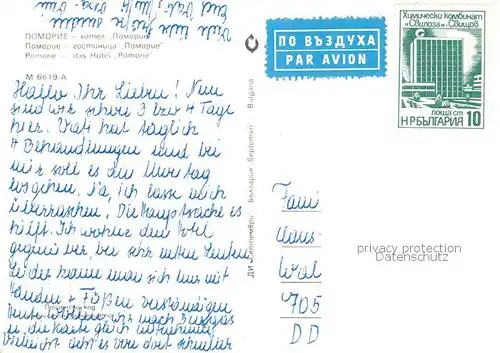 ПОМОРИЕ — хотел „Поморие"
Поморие — гостиница „Поморие"
Pomorie — das Hotel „Pomorie"
М 6619-А
Hallo Ihr Lieben! Nun
sind wir schon 3 bzw 4 Tage
hier. Vati hat täglich
4 Behandlungen und bei
mir soll es am Montag
losgehen. Na, ich lass mich
überraschen. Die Hauptsache es
hilft. Ich wohne dem Hotel
gegenüber, bei sehr netten Leuten.
Leider kann man sich nur mit
Händen + Füßen verständigen
Heute fahren wir nach
u. die Karte gleich mitnehmen
Vielleicht geht es von dort schneller
ДИ „Септември" България Septemvri Bulgaria
ПО ВЪЗДУХА
PAR AVION
Химически комбинат
„Свилоза"-Свищов
поща ст
НР БЪЛГАРИЯ 10
Fami
Claus
Wal
705
DD
privacy protection
Datenschutz